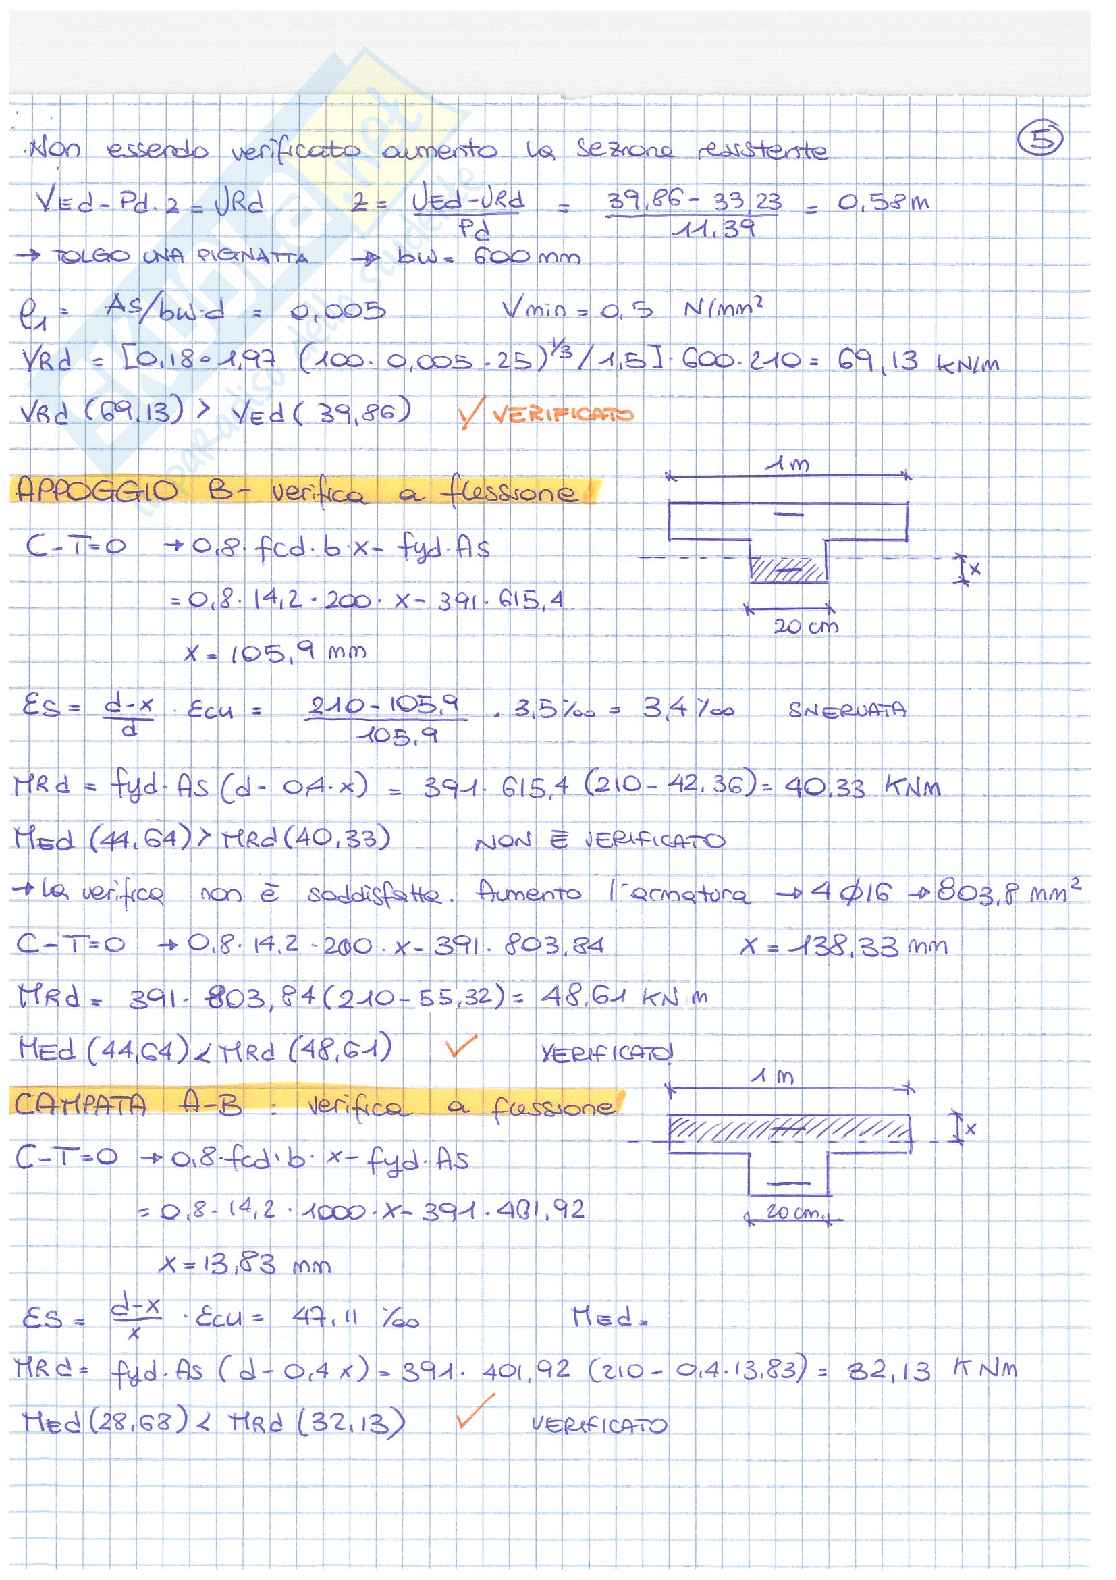 5
Non essendo verificato aumento la sezione resistente
VEd - Pd·z = VRd z = VEd-VRd / Pd = 39,86 - 33,23 / 11,39 = 0,58 m
→ TOLGO UNA PIGNATTA → bw = 600 mm
ρ1 = As/bw·d = 0,005 Vmin = 0,5 N/mm²
VRd = [0,18·1,97 (100·0,005·25)^1/3 / 1,5]·600·210 = 69,13 KN/m
VRd (69,13) > VEd (39,86) ✓ VERIFICATO
APPOGGIO B - verifica a flessione
1 m
C-T=0 → 0,8·fcd·b·x - fyd·As
x
= 0,8·14,2·200·x - 391·615,4
20 cm
x = 105,9 mm
εs = d-x / d · εcu = 210-105,9 / 105,9 · 3,5‰ = 3,4‰ SNERVATA
MRd = fyd·As (d-0,4·x) = 391·615,4 (210-42,36) = 40,33 KNm
MEd (44,64) > MRd (40,33) NON È VERIFICATO
→ la verifica non è soddisfatta. Aumento l'armatura → 4 ϕ16 → 803,8 mm²
C-T=0 → 0,8·14,2·200·x - 391·803,84 x = 138,33 mm
MRd = 391·803,84 (210-55,32) = 48,61 KN m
MEd (44,64) < MRd (48,61) ✓ VERIFICATO
1 m
CAMPATA A-B: verifica a flessione
x
C-T=0 → 0,8·fcd·b·x - fyd·As
= 0,8·14,2·1000·x - 391·401,92
20 cm
x = 13,83 mm
εs = d-x / x · εcu = 47,11 ‰ MEd =
MRd = fyd·As (d-0,4x) = 391·401,92 (210-0,4·13,83) = 32,13 KNm
MEd (28,68) < MRd (32,13) ✓ VERIFICATO